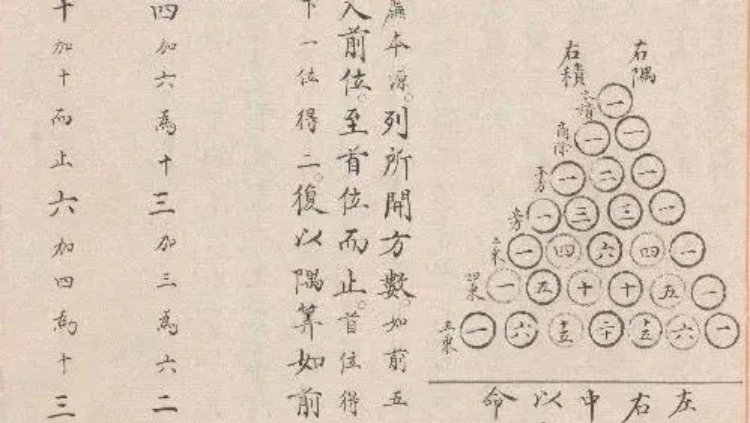 左右中以命
右隅
右積
一
一 一
一 二 一
一 三 三 一
一 四 六 四 一
一 五 十 十 五 一
一 六 十五 二十 十五 六 一
商除
平方
本源列所開方數如前五
入前位至首位而止首位得
下一位得二復以隅算如前
四加六為十三加三為六二
十加十而止六加四為十三